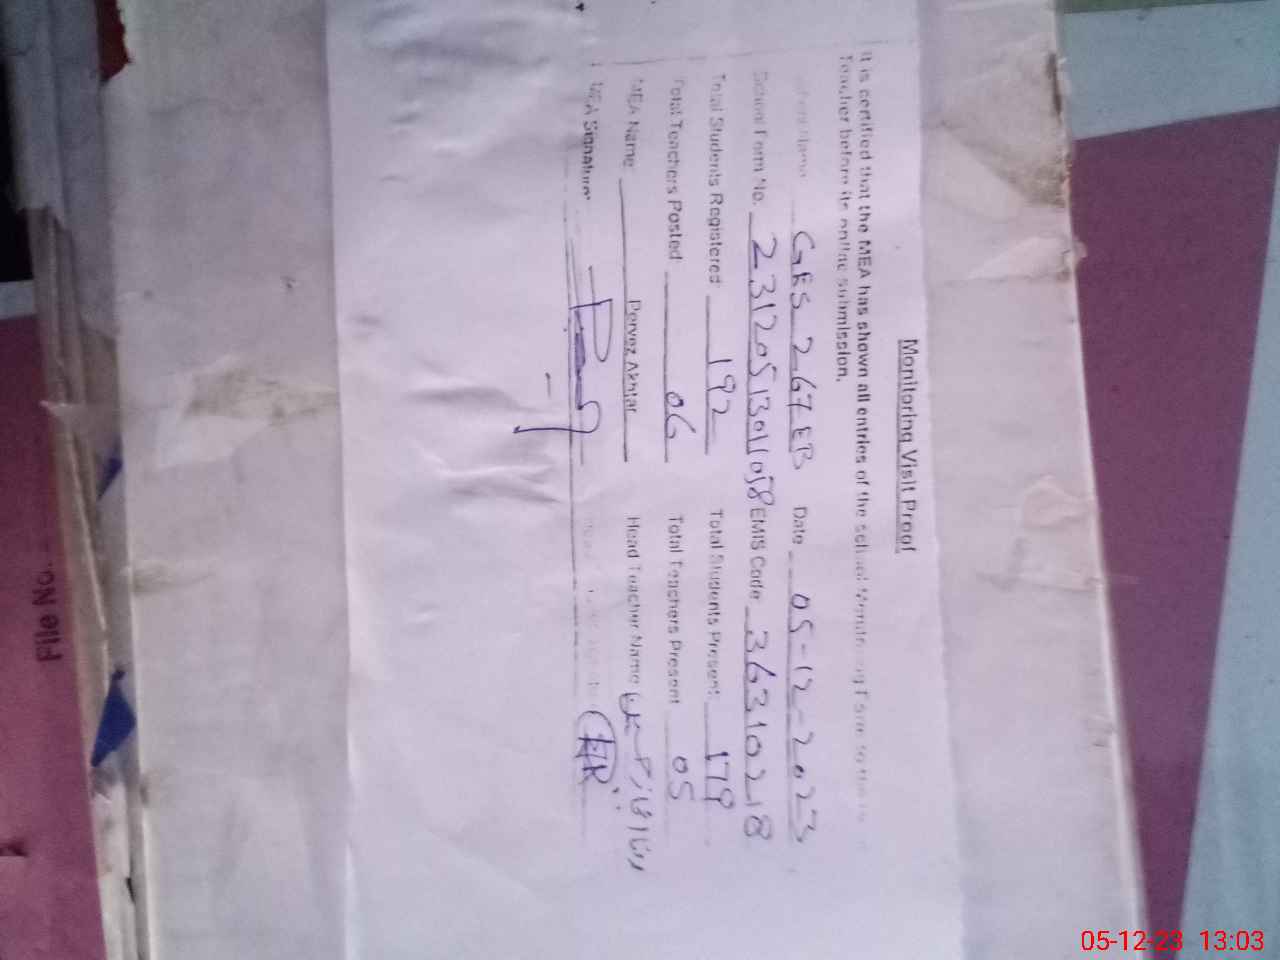 Monitoring Visit Proof
It is certified that the MEA has shown all entries of the school Monitoring Form to the
Teacher before its online submission.
School Name GES 267EB Date 05-12-2023
School Form No. 23120513011058 EMIS Code 36310218
Total Students Registered 192 Total Students Present 179
Total Teachers Posted 06 Total Teachers Present 05
MEA Name Pervez Akhtar Head Teacher Name
MEA Signature
File No.
05-12-23 13:03